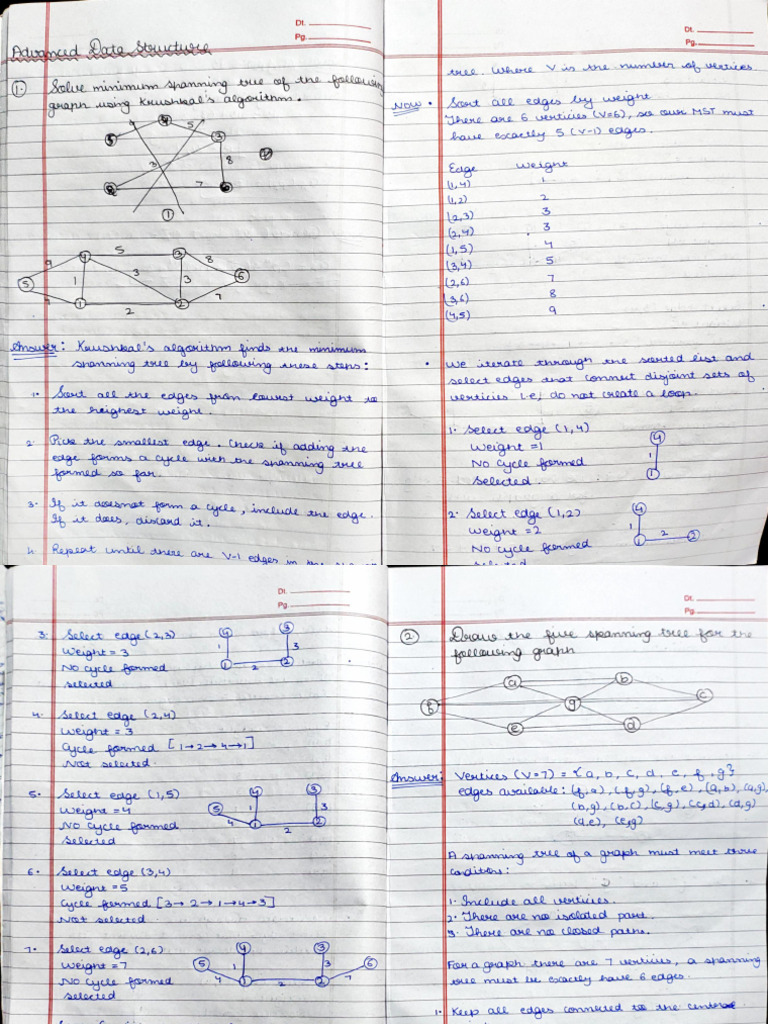 Dt.
Pg.
Advanced Data Structure
1. Solve minimum spanning tree of the following
graph using Krushkal's algorithm.
4
5
5
3
3
8
2
7
6
1
4
5
3
9
8
5
1
3
3
6
7
1
2
2
Answer: Krushkal's algorithm finds the minimum
spanning tree by following these steps:
1. Sort all the edges from lowest weight to
the heighest weight.
2. Pick the smallest edge. Check if adding the
edge forms a cycle with the spanning tree
formed so far.
3. If it doesnot form a cycle, include the edge.
If it does, discard it.
4. Repeat until there are V-1 edges in the
Dt.
Pg.
tree. Where V is the number of vertices
Now • Sort all edges by weight
There are 6 verticies (V=6), so our MST must
have exactly 5 (V-1) edges.
Edge Weight
(1,4) 1
(1,2) 2
(2,3) 3
(2,4) 3
(1,5) 4
(3,4) 5
(2,6) 7
(3,6) 8
(4,5) 9
• We iterate through the sorted list and
select edges that connect disjoint sets of
verticies i.e, do not create a loop.
1. Select edge (1,4)
Weight =1
No cycle formed
Selected.
4
1
1
2. Select edge (1,2)
Weight =2
No cycle formed
Selected
4
1
1
2
2
Dt.
Pg.
3. Select edge (2,3)
Weight = 3
No cycle formed
selected
4
3
1
3
1
2
2
4. Select edge (2,4)
Weight = 3
Cycle formed [1→2→4→1]
Not selected.
5. Select edge (1,5)
Weight =4
No cycle formed
Selected
4
3
5
1
3
4
1
2
2
6. Select edge (3,4)
Weight =5
Cycle formed [3→2→1→4→3]
Not selected.
7. Select edge (2,6)
Weight =7
No cycle formed
selected
4
3
5
6
1
3
4
1
2
2
7
Dt.
Pg.
2 Draw the five spanning tree for the
following graph
a
b
f
g
c
e
d
Answer: Vertices (V=7) = {a, b, c, d, e, f, g}
edges available: (f,a), (f,g), (f,e), (a,b), (a,g),
(b,g), (b,c), (c,g), (c,d), (d,g)
(d,e), (e,g)
A spanning tree of a graph must meet three
conditions:
1. Include all verticies.
2. There are no isolated part.
3. There are no closed paths.
For a graph there are 7 verticies, a spanning
tree must be exactly have 6 edges.
1. Keep all edges connected to the